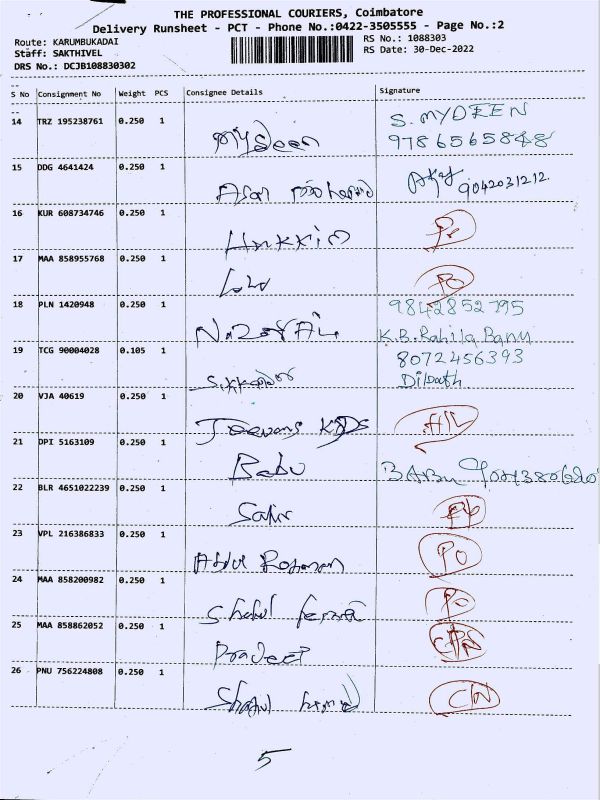 THE PROFESSIONAL COURIERS, Coimbatore
Delivery Runsheet - PCT - Phone No.:0422-3505555 - Page No.:2
Route: KARUMBUKADAI RS No.: 1088303
Staff: SAKTHIVEL RS Date: 30-Dec-2022
DRS No.: DCJB108830302
S No Consignment No Weight PCS Consignee Details Signature
S. MYDEEN
14 TRZ 195238761 0.250 1
9786565848
15 DDG 4641424 0.250 1
9042031212
16 KUR 608734746 0.250 1
Hakkim PO
17 MAA 858955768 0.250 1
PO
18 PLN 1420948 0.250 1 9842852795
K.B. Rahila Banu
19 TCG 90004028 0.105 1 8072456393
Dilbath
20 VJA 40619 0.250 1
Jeevans Kids
21 DPI 5163109 0.250 1
Babu BABU
22 BLR 4651022239 0.250 1
Safir
23 VPL 216386833 0.250 1
Abdul Rahman PO
24 MAA 858200982 0.250 1
Shahul PO
25 MAA 858862052 0.250 1
Pradeep
26 PNU 756224808 0.250 1
CN
5